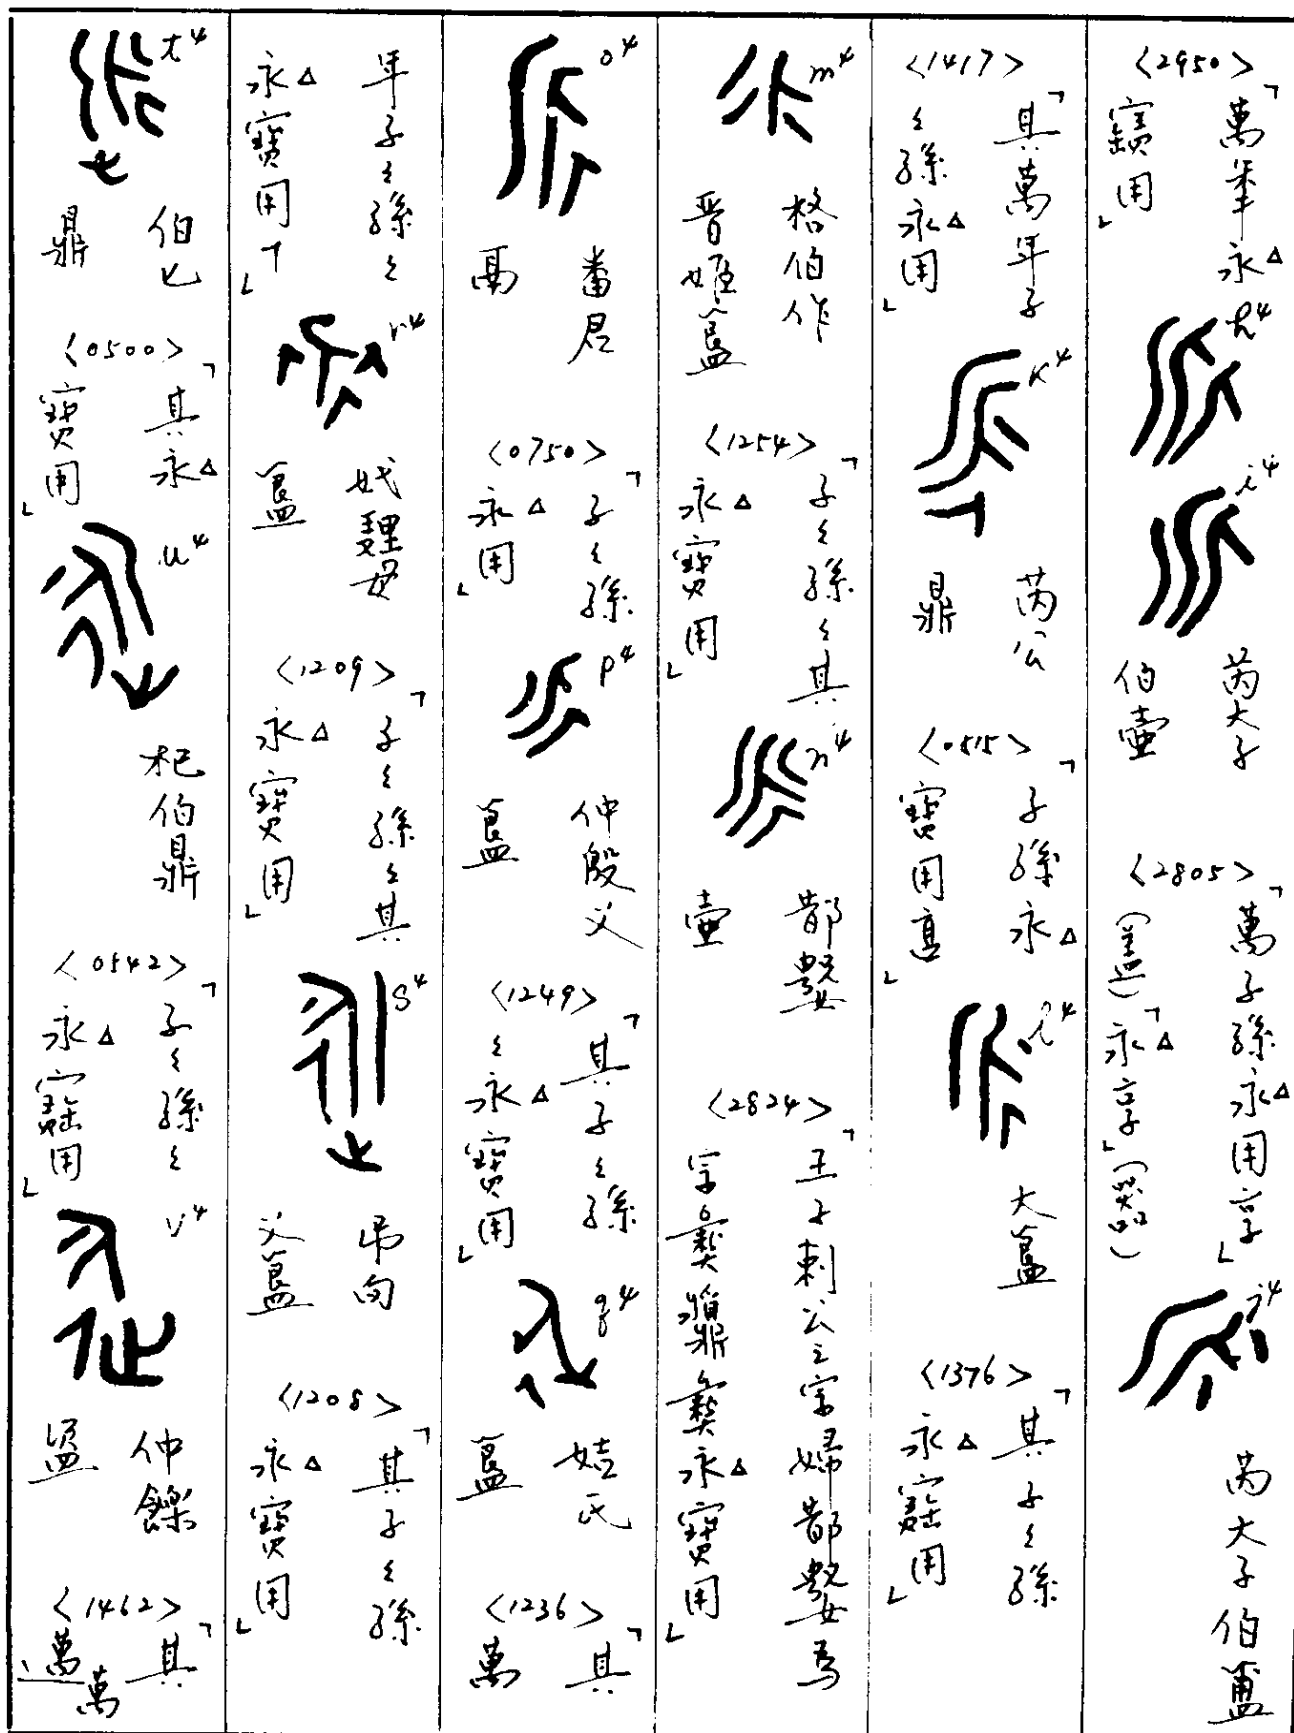 <2950>
「萬年永△
寶用」
h⁴
i⁴
芮大子
伯壺
<2805>
「萬子孫永△用享」
(蓋)「永△享」(器)
j⁴
芮大子伯𥂴
<1417>
「其萬年子
〻孫永△用」
k⁴
芮公
鼎
<0515>
「子孫永△
寶用享」
l⁴
大簋
<1376>
「其子〻孫
永△寶用」
m⁴
格伯作
晉姬簋
<1254>
「子〻孫〻其
永△寶用」
n⁴
壺
<2824>
「王子剌公之宗婦為
宗彝鼎彝永△寶用」
o⁴
番君
鬲
<0750>
「子〻孫
永△用」
p⁴
仲殷父
簋
<1249>
「其子〻孫
〻永△寶用」
q⁴
姞氏
簋
<1236>
「其
萬
年子〻孫〻
永△寶用」
r⁴
簋
<1209>
「子〻孫〻其
永△寶用」
s⁴
弔向
父簋
<1208>
「其子〻孫
永△寶用」
t⁴
伯
鼎
<0500>
「其永△
寶用」
u⁴
杞伯鼎
<0542>
「子〻孫〻
永△寶用」
v⁴
仲鑠
盨
<1462>
「其
邁萬